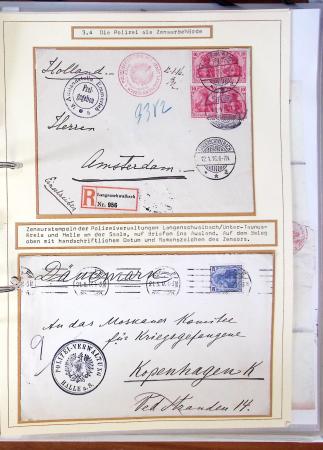 3.4 Die Polizei als Zensurbehörde
Holland
Frei-
gegeben
9382
Herren
Amsterdam.
Einschreiben
R
Langenschwalbach
Nr. 986
LANGENSCHWALBACH
12.1.16.6-7N.
Zensurstempeln der Polizeiverwaltungen Langenschwalbach/Unter-Taunus-
Kreis und Halle an der Saale, auf Briefen ins Ausland. Auf dem Beleg
oben mit handschriftlichem Datum und Namenszeichen des Zensors.
Dänemark
An das Moskauer Komitee
für Kriegsgefangene
Kopenhagen K
Ved Stranden 14.
POLIZEI-VERWALTUNG
HALLE a.S.